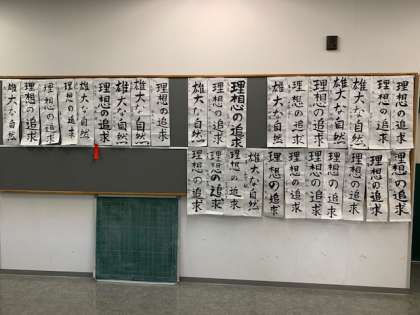 雄大な自然
理想の追求
理想の追求
理想の追求
雄大な自然
理想の追求
雄大な自然
雄大な自然
理想の追求
雄大な自然
理想の追求
理想の追求
雄大な自然
雄大な自然
理想の追求
雄大な自然
雄大な自然
理想の追求
理想の追求
理想の追求
理想の追求
理想の追求
雄大な自然
理想の追求
理想の追求
理想の追求
理想の追求
理想の追求
理想の追求
理想の追求